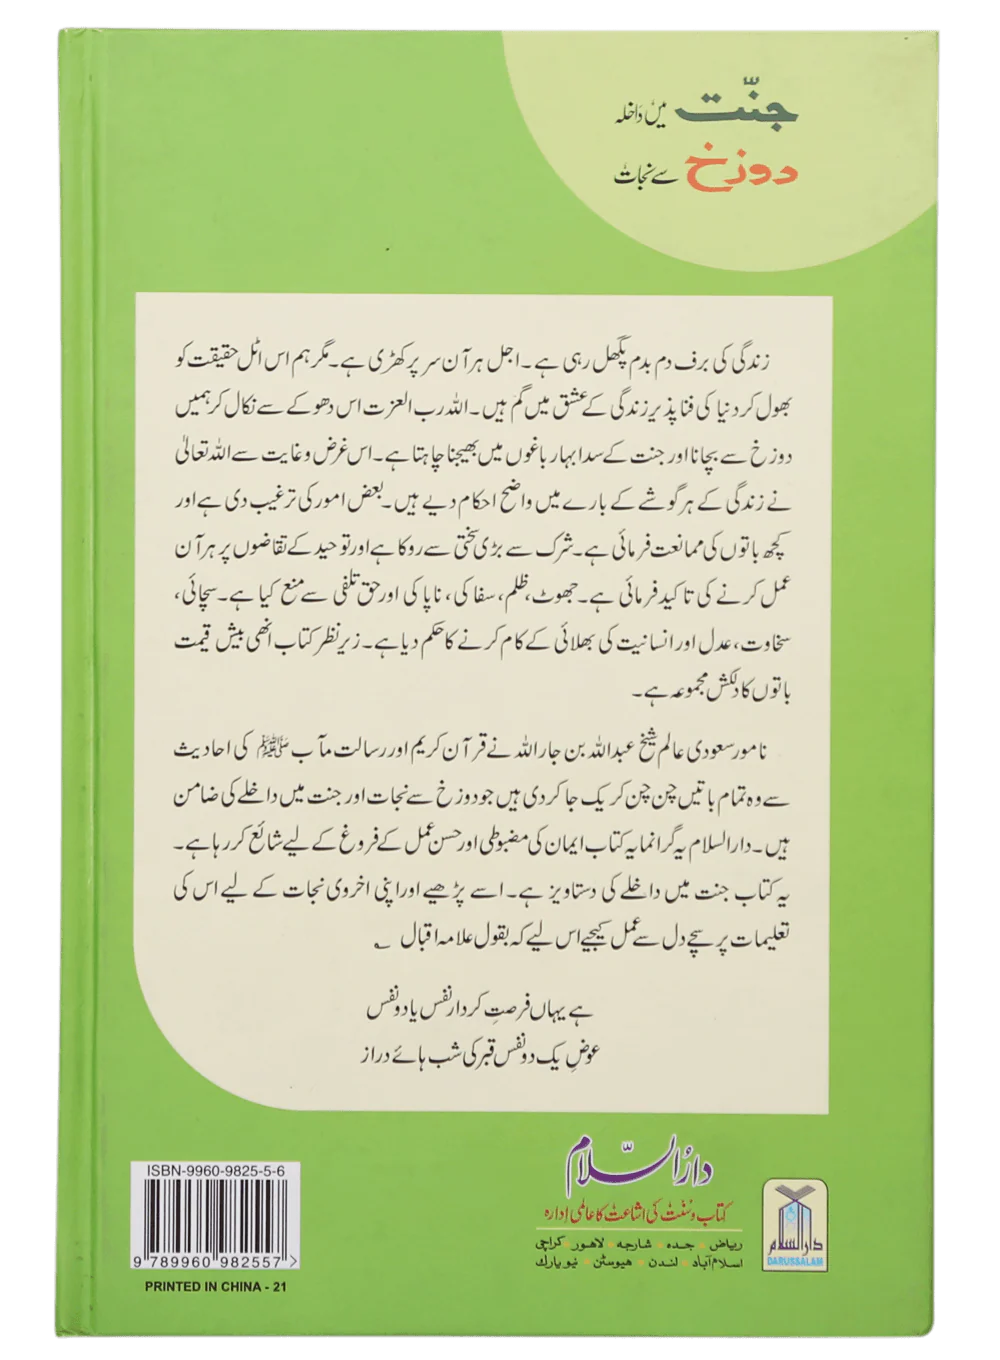 جنّت میں داخلہ
دوزخ سے نجات
زندگی کی برف دم بدم پگھل رہی ہے۔ اجل ہر آن سر پر کھڑی ہے۔ مگر ہم اس اٹل حقیقت کو
بھول کر دنیا کی فنا پذیر زندگی کے عشق میں گم ہیں۔ اللہ رب العزت اس دھوکے سے نکال کر ہمیں
دوزخ سے بچانا اور جنت کے سدا بہار باغوں میں بھیجنا چاہتا ہے۔ اس غرض و غایت سے اللہ تعالیٰ
نے زندگی کے ہر گوشے کے بارے میں واضح احکام دیے ہیں۔ بعض امور کی ترغیب دی ہے اور
کچھ باتوں کی ممانعت فرمائی ہے۔ شرک سے بڑی سختی سے روکا ہے اور توحید کے تقاضوں پر ہر آن
عمل کرنے کی تاکید فرمائی ہے۔ جھوٹ، ظلم، سفاکی، ناپاکی اور حق تلفی سے منع کیا ہے۔ سچائی،
سخاوت، عدل اور انسانیت کی بھلائی کے کام کرنے کا حکم دیا ہے۔ زیر نظر کتاب انھی بیش قیمت
باتوں کا دلکش مجموعہ ہے۔
نامور سعودی عالم شیخ عبداللہ بن جاراللہ نے قرآن کریم اور رسالت مآب ﷺ کی احادیث
سے وہ تمام باتیں چن چن کر یک جا کر دی ہیں جو دوزخ سے نجات اور جنت میں داخلے کی ضامن
ہیں۔ دارالسلام یہ گرانمایہ کتاب ایمان کی مضبوطی اور حسن عمل کے فروغ کے لیے شائع کر رہا ہے۔
یہ کتاب جنت میں داخلے کی دستاویز ہے۔ اسے پڑھیے اور اپنی اخروی نجات کے لیے اس کی
تعلیمات پر سچے دل سے عمل کیجیے اس لیے کہ بقول علامہ اقبال ؎
ہے یہاں فرصتِ کردار نفس یا دو نفس
عوضِ یک دو نفس قبر کی شب ہائے دراز
دارُالسّلام
کتاب و سنّت کی اشاعت کا عالمی ادارہ
ریاض • جدہ • شارجہ • لاهور • کراچی
اسلام آباد • لندن • هیوسٹن • نیو یارک
دارالسلام
DARUSSALAM
ISBN-9960-9825-5-6
9 789960 982557 >
PRINTED IN CHINA - 21